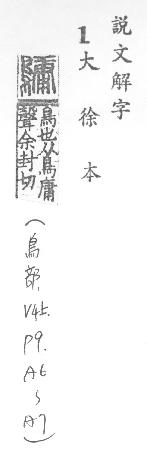 説文解字
1大徐本
鳥也从鳥庸
聲余封切
(鳥部. V4上. P9. A6 ~ A7)